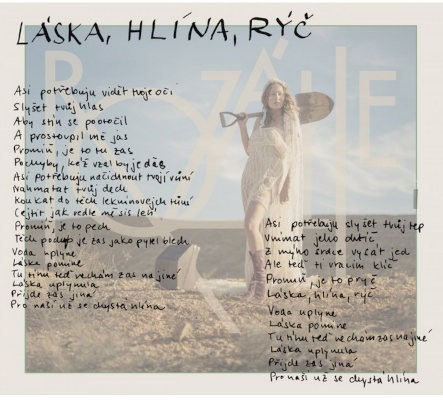 LÁSKA, HLÍNA, RÝČ
ROZÁLIE
Asi potřebuju vidět tvoje oči
Slyšet tvůj hlas
Aby stín se pootočil
A prostoupil mě jas
Promiň, je to tu zas
Pochyby, kéž vzal by je ďas
Asi potřebuju načichnout tvojí vůní
Nahmatat tvůj dech
Koukat do těch leknínových tůní
Cejtit jak vedle mě sis leh
Promiň, je to pech
Těch podob je zas jako pytel blech
Voda uplyne
Láska pomine
Tu tíhu teď nechám zas na jiné
Láska uplynula
Přijde zas jiná
Pro naši už se chystá hlína
Asi potřebuju slyšet tvůj tep
Vnímat jeho
Z mýho srdce vysát jed
Ale teď ti vracím klíč
Promiň, je to pryč
Láska, hlína, rýč
Voda uplyne
Láska pomine
Tu tíhu teď nechám zas na jiné
Láska uplynula
Přijde zas jiná
Pro naši už se chystá hlína